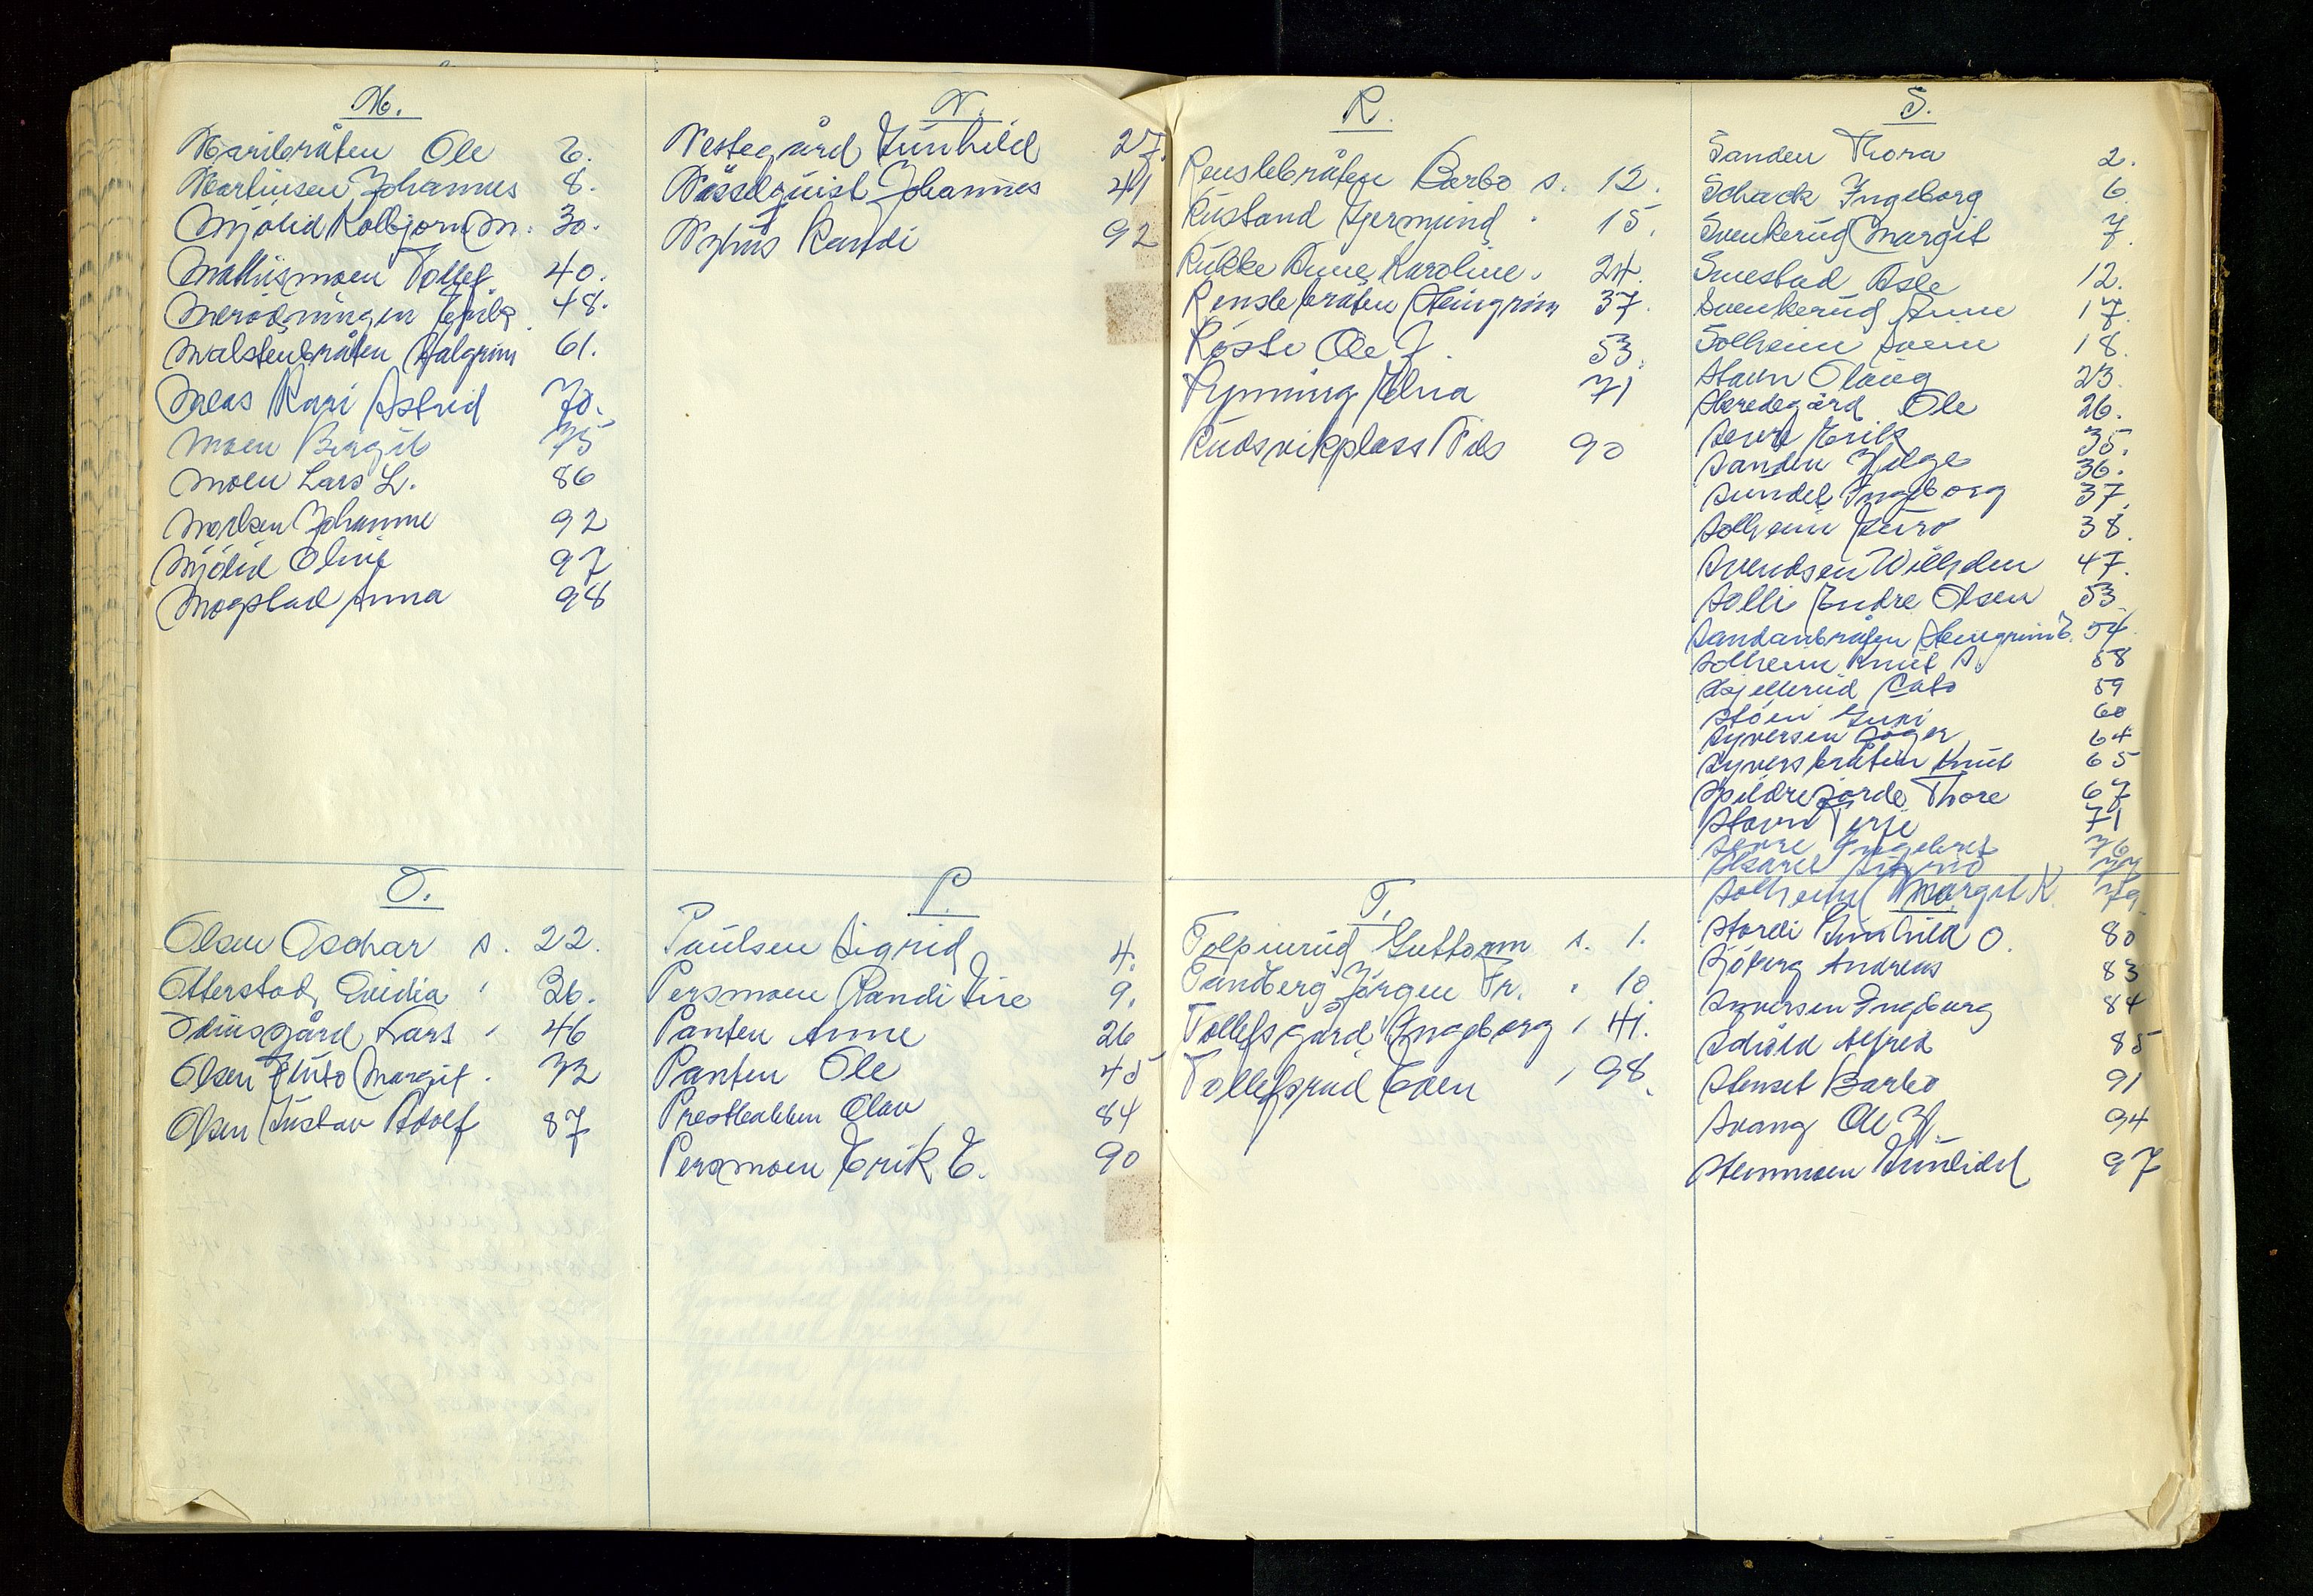 M.
Maribråten Ole 6.
Martinsen Johannes 8.
Mjølid Kolbjørn M. 30.
Mathismoen Tollef. 40.
48.
Malstenbråten Halgrim 61.
Moas Kari Astrid 70.
Moen Birgit 75
Moen Lars L. 86
Morken Johanne 92
Mjölid Oline 97
Mogstad Anna 98
N.
Nestegård Gunhild 27.
Nösselquist Johannes 41
Nyhus Randi 92
O.
Olsen Oschar s. 22.
Otterstad, Ovidia " 36.
Odinsgård Lars " 46
Olsen Guro Margit. 72
Olsen Gustav Adolf 87
P.
Paulsen Sigrid 4.
Persmoen Randi Sire 9.
Panten Anne 26
Panten Ole 45
Prestbakken Olav 84
Persmoen Erik E. 90
R.
Renslebråten Barbo s. 12.
Rustand Gjermund " 15.
Rukke Anne Karoline. 24.
Renslebråten Steingrim 37.
Röste Ole J. 53.
Rynning Elna 71
Rudsvikplass Nils 90
T.
Tolpinrud Guttorm s. 1.
Tandberg Jörgen Fr. " 10.
Tollefsgård Ingeborg " 41.
Tollefsrud Even " 98.
S.
Sanden Thora 2.
Schack Ingeborg 6.
Svenkerud Margit 7.
Smestad Asle 12.
Svenkerud Anne 17.
Solheim Svein 18.
Stavn Olaug 23.
Skredegård Ole 26.
Sevre Erik 35.
Sanden Helge 36.
Sundet Ingeborg 37.
Solheim Guro 38.
Svendsen Wilhelm 47.
Solli Endre Olsen 53
Sandanbråten Steingrim E. 54.
Solheim Knut S. 58
Skjellerud Cato 59
Stöen Guri 60
Syversen Roger 64
Syversbråten Knut 65
Spildrejorde Thore 67
Stavn Terje 71
Sevre Ingebret 76
77
Solheim Margit K. 79.
Stordi Gunhild O. 80
Sjöberg Andreas 83
Syversen Ingeborg 84
Schöld Alfred 85
Stenset Barbo 91
Svang Ole H. 94
Stenmoen Gunhild 97